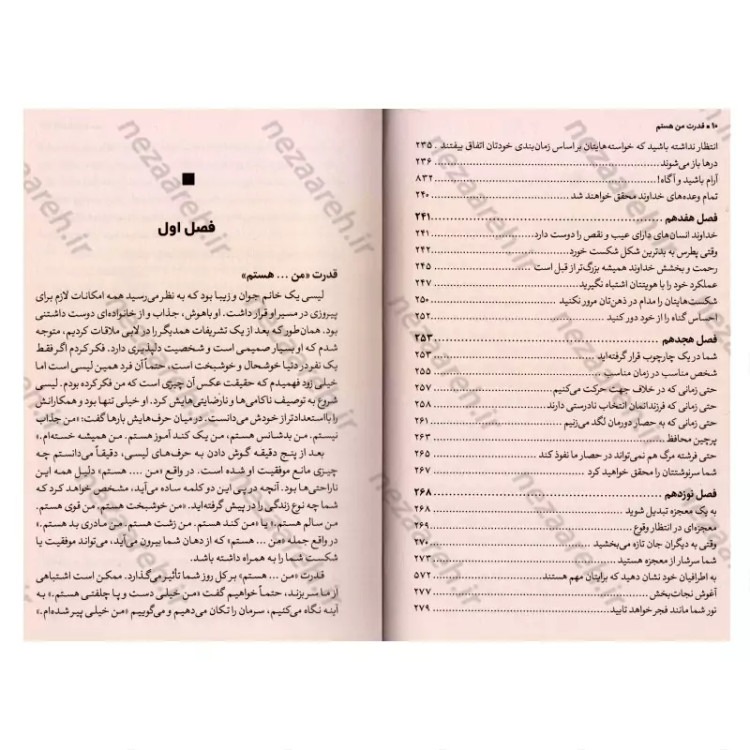 ۱۰ ● قدرت من هستم
انتظار نداشته باشید که خواسته‌هایتان بر اساس زمان‌بندی خودتان اتفاق بیفتند . ۲۳۵
درها باز می‌شوند ۲۳۶
آرام باشید و آگاه! ۸۳۲
تمام وعده‌های خداوند محقق خواهند شد ۲۴۰
فصل هفدهم ۲۴۱
خداوند انسان‌های دارای عیب و نقص را دوست دارد ۲۴۱
وقتی پطرس به بدترین شکل شکست خورد ۲۴۲
رحمت و بخشش خداوند همیشه بزرگ‌تر از قبل است ۲۴۵
عملکرد خود را با هویتتان اشتباه نگیرید ۲۴۷
شکست‌هایتان را مدام در ذهن‌تان مرور نکنید ۲۵۰
احساس گناه را از خود دور کنید ۲۵۲
فصل هجدهم ۲۵۳
شما در یک چارچوب قرار گرفته‌اید ۲۵۳
شخص مناسب در زمان مناسب ۲۵۵
حتی زمانی که در خلاف جهت حرکت می‌کنیم ۲۵۷
حتی زمانی که فرزندانمان انتخاب نادرستی دارند ۲۵۸
حتی زمانی که به حصار دورمان لگد می‌زنیم ۲۶۱
پرچین محافظ ۲۶۳
حتی فرشته مرگ هم نمی‌تواند در حصار ما نفوذ کند ۲۶۵
شما سرنوشتتان را محقق خواهید کرد ۲۶۷
فصل نوزدهم ۲۶۸
به یک معجزه تبدیل شوید ۲۶۸
معجزه‌ای در انتظار وقوع ۲۶۹
وقتی به دیگران جان تازه می‌بخشید ۲۷۰
شما سرشار از معجزه هستید ۲۷۳
به اطرافیان خود نشان دهید که برایتان مهم هستند ۵۷۲
آغوش نجات‌بخش ۲۷۷
نور شما مانند فجر خواهد تابید ۲۷۹
فصل اول
قدرت «من ... هستم»
لیسی یک خانم جوان و زیبا بود که به نظر می‌رسید همه امکانات لازم برای
پیروزی در مسیر او قرار داشت. او باهوش، جذاب و از خانواده‌ای دوست داشتنی
بود. همان‌طور که بعد از یک تشریفات همدیگر را در لابی ملاقات کردیم، متوجه
شدم که او بسیار صمیمی است و شخصیت دلپذیری دارد. فکر کردم اگر فقط
یک نفر در دنیا خوشحال و خوشبخت است، حتماً آن فرد همین لیسی است اما
خیلی زود فهمیدم که حقیقت عکس آن چیزی است که من فکر کرده بودم. لیسی
شروع به توصیف ناکامی‌ها و نارضایتی‌هایش کرد. او خیلی تنها بود و همکارانش
را با استعدادتر از خودش می‌دانست. در میان حرف‌هایش بارها گفت: «من جذاب
نیستم. من بدشانس هستم، من یک کند آموز هستم. من همیشه خسته‌ام.»
بعد از پنج دقیقه گوش دادن به حرف‌های لیسی، دقیقاً می‌دانستم چه
چیزی مانع موفقیت او شده است. در واقع «من .... هستم» دلیل همه این
ناراحتی‌ها بود. آنچه در پی این دو کلمه ساده می‌آید، مشخص خواهد کرد که
شما چه نوع زندگی را در پیش گرفته‌اید. «من خوشبخت هستم. من قوی هستم.
من سالم هستم.» یا «من کند هستم. من زشت هستم. من مادری بد هستم.»
در واقع جمله «من ... هستم» که از دهان شما بیرون می‌آید، می‌تواند موفقیت یا
شکست شما را به همراه داشته باشد.
قدرت «من ... هستم» بر کل روز شما تأثیر می‌گذارد. ممکن است اشتباهی
از ما سر بزند، حتماً خواهیم گفت «من خیلی دست و پا چلفتی هستم.» به
آینه نگاه می‌کنیم، سرمان را تکان می‌دهیم و می‌گوییم «من خیلی پیر شده‌ام.»
nezaareh.ir